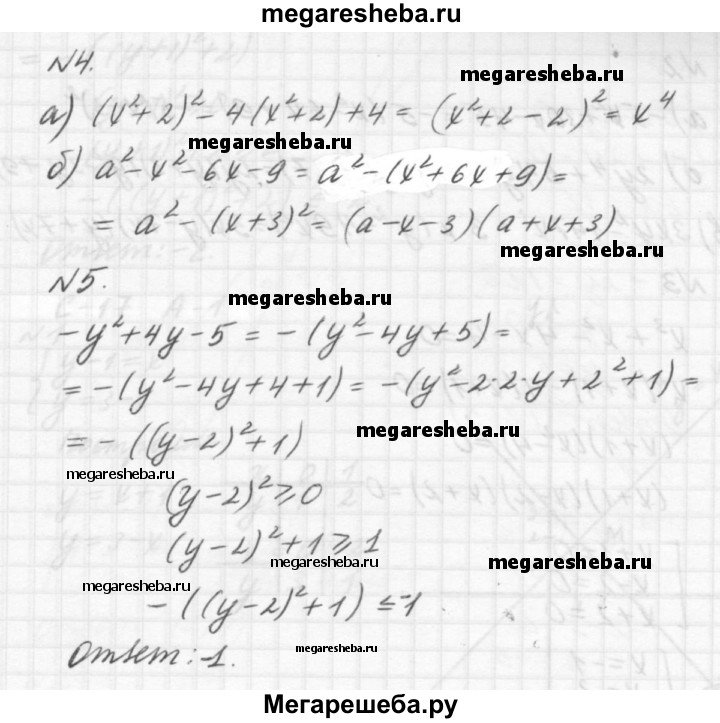 megaresheba.ru
N4.
megaresheba.ru
а) (x²+2)²-4(x²+2)+4 = (x²+2-2)² = x⁴
megaresheba.ru
б) a²-x²-6x-9 = a²-(x²+6x+9) =
= a²-(x+3)² = (a-x-3)(a+x+3)
megaresheba.ru
N5.
megaresheba.ru
-y²+4y-5 = -(y²-4y+5) =
= -(y²-4y+4+1) = -(y²-2·2·y+2²+1) =
= -((y-2)²+1)
megaresheba.ru
megaresheba.ru
(y-2)² ≥ 0
(y-2)²+1 ≥ 1
megaresheba.ru
megaresheba.ru
-((y-2)²+1) ≤ -1
megaresheba.ru
Ответ: -1.
Мегарешеба.ру